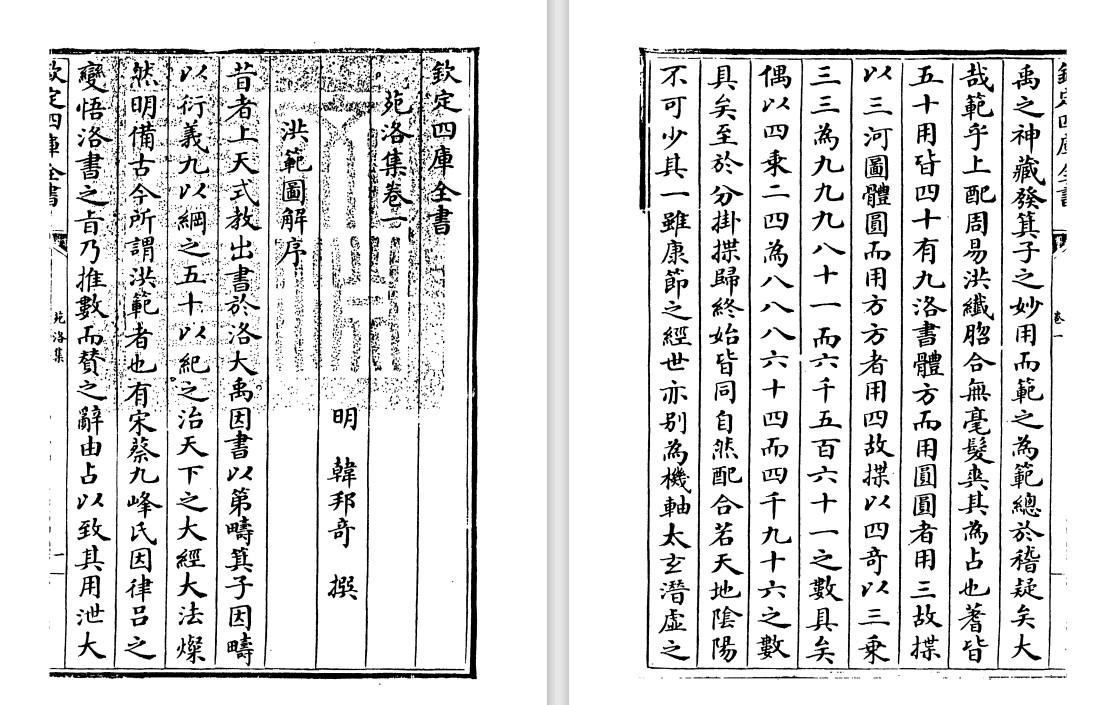 欽定四庫全書
苑洛集卷一
明 韓邦奇 撰
洪範圖解序
昔者上天式教出書於洛大禹因書以第疇箕子因疇
以衍義九以綱之五十以紀之治天下之大經大法燦
然明備古今所謂洪範者也有宋蔡九峰氏因律吕之
變悟洛書之㫖乃推數而賛之辭由占以致其用泄大
欽定四庫全書
苑洛集
一
欽定四庫全書
卷一
禹之神藏發箕子之妙用而範之為範總於稽疑矣大
哉範乎上配周易洪纖脗合無毫髮爽其為占也蓍皆
五十用皆四十有九洛書體方而用圓圓者用三故揲
以三河圖體圓而用方方者用四故揲以四奇以三乗
三三為九九九八十一而六千五百六十一之數具矣
偶以四乗二四為八八八六十四而四千九十六之數
具矣至於分掛揲歸終始皆同自然配合若天地隂陽
不可少其一雖康節之經世亦别為機軸太玄潛虚之